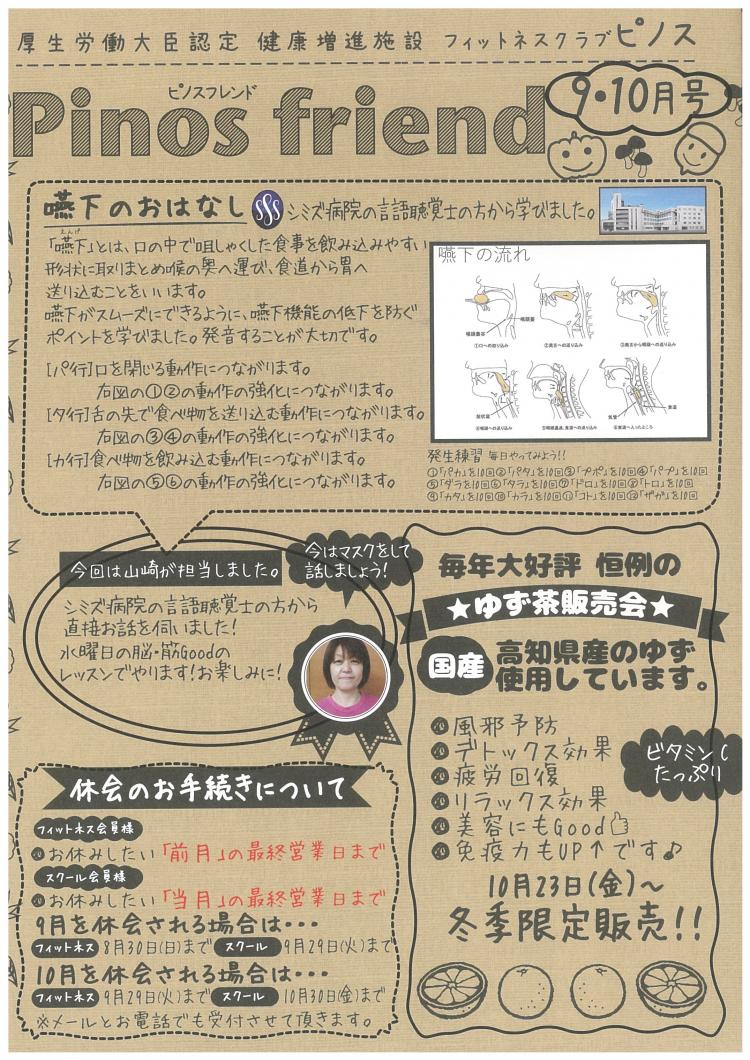 厚生労働大臣認定 健康増進施設 フィットネスクラブピノス
ピノスフレンド
Pinos friend
9・10月号
嚥下のおはなし SSS シミズ病院の言語聴覚士の方から学びました。
えんげ
「嚥下」とは、口の中で咀しゃくした食事を飲み込みやすい
形状に取りまとめ喉の奥へ運び、食道から胃へ
送り込むことをいいます。
嚥下がスムーズにできるように、嚥下機能の低下を防ぐ
ポイントを学びました。発音することが大切です。
[パ行]口を閉じる動作につながります。
右図の①②の動作の強化につながります。
[タ行]舌の先で食べ物を送り込む動作につながります。
右図の③④の動作の強化につながります。
[カ行]食べ物を飲み込む動作につながります。
右図の⑤⑥の動作の強化につながります。
嚥下の流れ
喉頭蓋谷
喉頭蓋
①口への取り込み
②奥舌への送り込み
③奥舌から咽頭への送り込み
梨状窩
気管
食道
④咽頭への送り込み
⑤喉頭蓋通過、食道への送り込み
⑥食道へ入ったところ
発生練習 毎日やってみよう!!
①「パカ」を10回②「パタ」を10回③「プポ」を10回④「パプ」を10回
⑤「ダラ」を10回⑥「タラ」を10回⑦「ドロ」を10回⑧「トロ」を10回
⑨「カタ」を10回⑩「カラ」を10回⑪「コト」を10回⑫「ザガ」を10回
今回は山崎が担当しました。
今はマスクをして
話しましょう!
シミズ病院の言語聴覚士の方から
直接お話を伺いました!
水曜日の脳・筋Goodの
レッスンでやります!お楽しみに!
毎年大好評 恒例の
★ゆず茶販売会★
国産
高知県産のゆず
使用しています。
風邪予防
デトックス効果
疲労回復
リラックス効果
美容にもGood
免疫力もUP↑です♪
ビタミンC
たっぷり
10月23日(金)～
冬季限定販売!!
休会のお手続きについて
フィットネス会員様
お休みしたい「前月」の最終営業日まで
スクール会員様
お休みしたい「当月」の最終営業日まで
9月を休会される場合は・・・
フィットネス 8月30日(日)まで スクール 9月29日(火)まで
10月を休会される場合は・・・
フィットネス 9月29日(火)まで スクール 10月30日(金)まで
※メールとお電話でも受付させて頂きます。